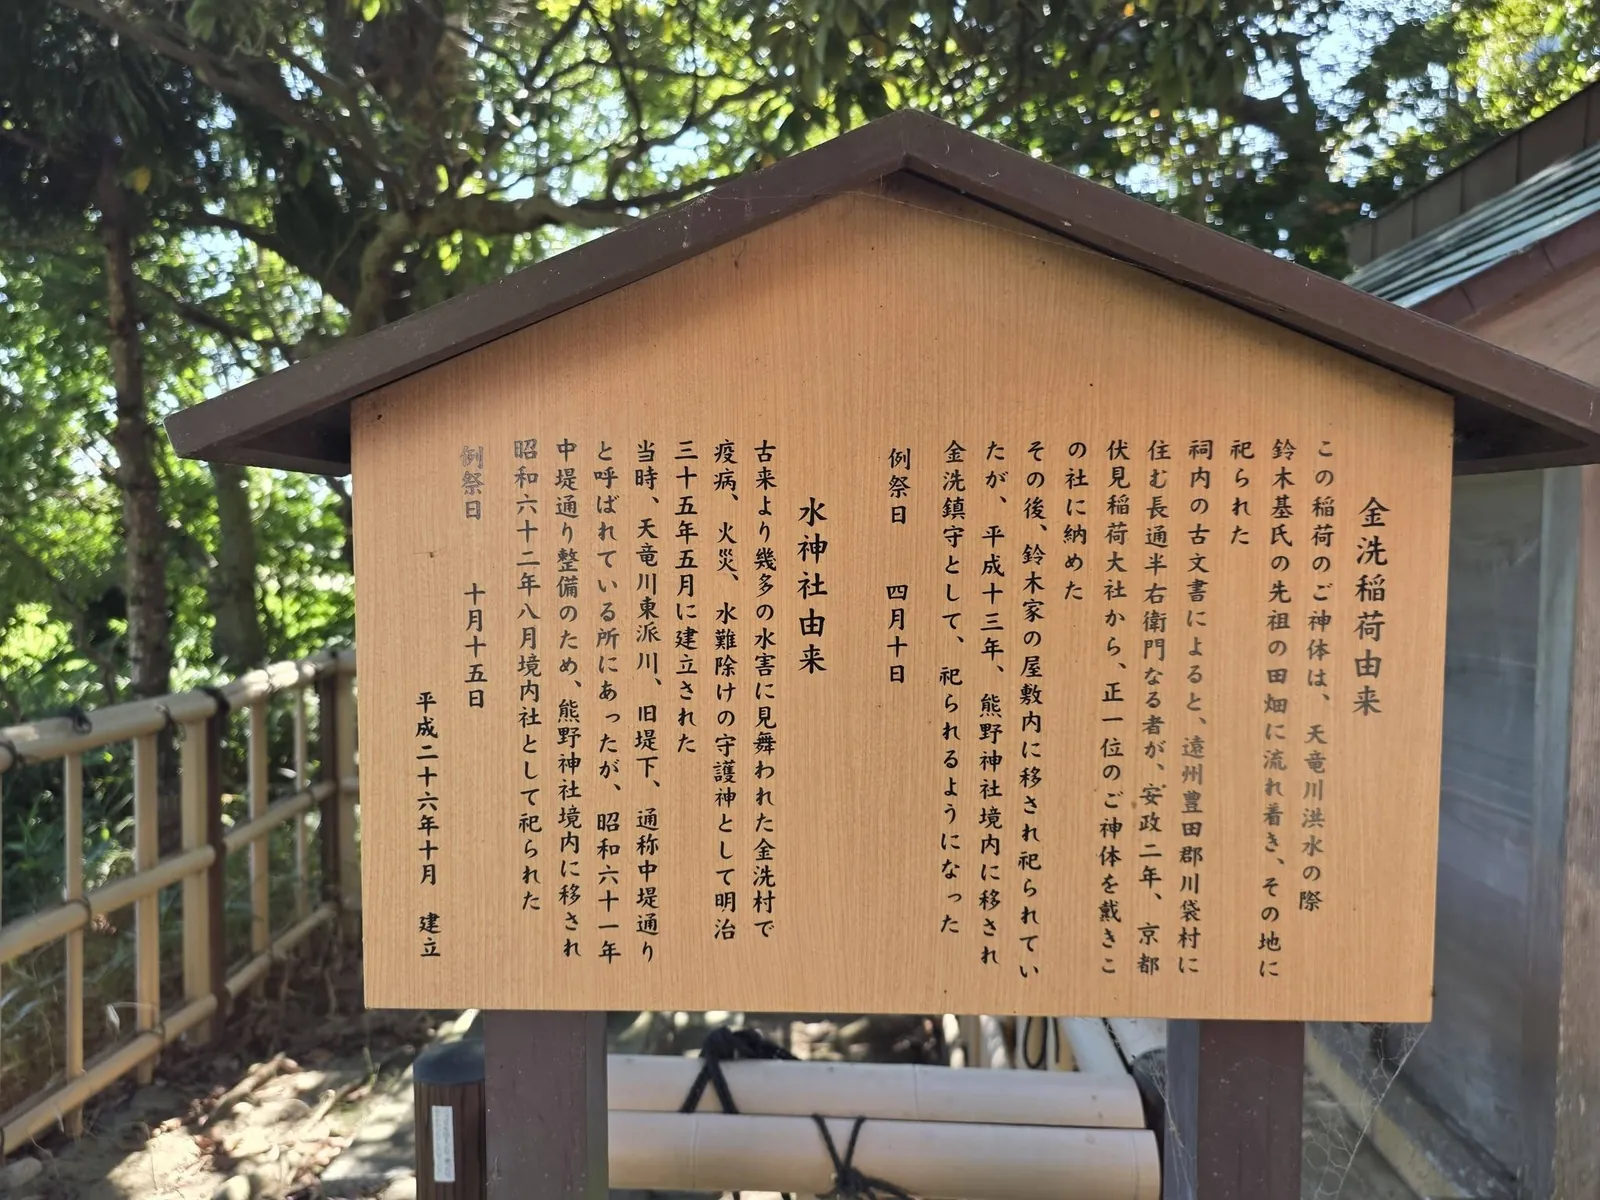 金洗稲荷由来
この稲荷のご神体は、天竜川洪水の際
鈴木基氏の先祖の田畑に流れ着き、その地に
祀られた
祠内の古文書によると、遠州豊田郡川袋村に
住む長通半右衛門なる者が、安政二年、京都
伏見稲荷大社から、正一位のご神体を戴きこ
の社に納めた
その後、鈴木家の屋敷内に移され祀られてい
たが、平成十三年、熊野神社境内に移され
金洗鎮守として、祀られるようになった
例祭日　四月十日
水神社由来
古来より幾多の水害に見舞われた金洗村で
疫病、火災、水難除けの守護神として明治
三十五年五月に建立された
当時、天竜川東派川、旧堤下、通称中堤通り
と呼ばれている所にあったが、昭和六十一年
中堤通り整備のため、熊野神社境内に移され
昭和六十二年八月境内社として祀られた
例祭日　十月十五日
平成二十六年十月　建立